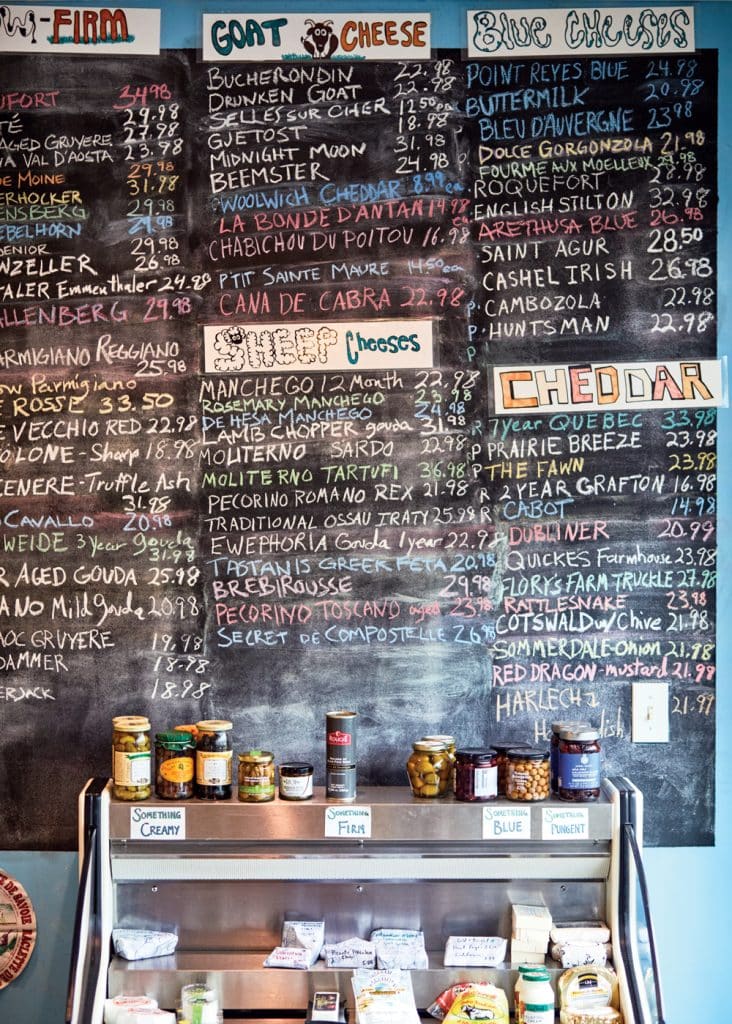 W-FIRM
UFORT 34.98
TÉ 29.98
AGED GRUYERE 27.98
A VAL D'AOSTA 23.98
DE MOINE 29.98
ERHOCKER 31.98
ENSBERG 29.98
EBELHORN 29.98
SENIOR 29.98
NZELLER 26.98
TALER Emmenthaler 24.98
ALLENBERG 29.98
ARMIGIANO REGGIANO
25.98
OW Parmigiano
E ROSSE 33.50
E VECCHIO RED 22.98
OLONE - Sharp 18.98
CENERE - Truffle Ash
31.98
CAVALLO 20.98
WEIDE 3 year gouda
31.98
R AGED GOUDA 25.98
ANO Mild Gouda 20.98
OC GRUYERE 19.98
DAMMER 18.98
ERJACK 18.98
GOAT CHEESE
BUCHERONDIN 22.98
DRUNKEN GOAT 22.98
SELLES SUR CHER 12.50
GJETOST 18.98
MIDNIGHT MOON 31.98
BEEMSTER 24.98
WOOLWICH CHEDDAR 8.99 ea
LA BONDE D'ANTAN 14.98 ea
CHABICHOU DU POITOU 16.98
P'TIT SAINTE MAURE 14.50 ea
CANA DE CABRA 22.98
SHEEP Cheeses
MANCHEGO 12 Month 22.98
ROSEMARY MANCHEGO 23.98
DE HESA MANCHEGO 24.98
LAMB CHOPPER gouda 31.98
MOLITERNO SARDO 22.98
MOLITERNO TARTUFI 36.98
PECORINO ROMANO REX 21.98
TRADITIONAL OSSAU IRATY 25.98
EWEPHORIA Gouda 1 year 22.98
TASTANIS GREEK FETA 20.98
BREBIROUSSE 29.98
PECORINO TOSCANO aged 23.98
SECRET DE COMPOSTELLE 26.98
BLUE CHEESES
POINT REYES BLUE 24.98
BUTTERMILK 20.98
BLEU D'AUVERGNE 23.98
DOLCE GORGONZOLA 21.98
FOURME AUX MOELLEUX 29.98
ROQUEFORT 28.98
ENGLISH STILTON 32.98
ARETHUSA BLUE 26.98
SAINT AGUR 28.50
CASHEL IRISH 26.98
CAMBOZOLA 22.98
HUNTSMAN 22.98
CHEDDAR
7 year QUEBEC 33.98
PRAIRIE BREEZE 23.98
THE FAWN 23.98
2 YEAR GRAFTON 16.98
CABOT 14.98
DUBLINER 20.99
QUICKES Farmhouse 23.98
FLORY'S FARM TRUCKLE 27.98
RATTLESNAKE 23.98
COTSWALD w/ Chive 21.98
SOMMERDALE-Onion 21.98
RED DRAGON-mustard 21.98
HARLECH 21.97
SOMETHING CREAMY
SOMETHING FIRM
SOMETHING BLUE
SOMETHING PUNGENT